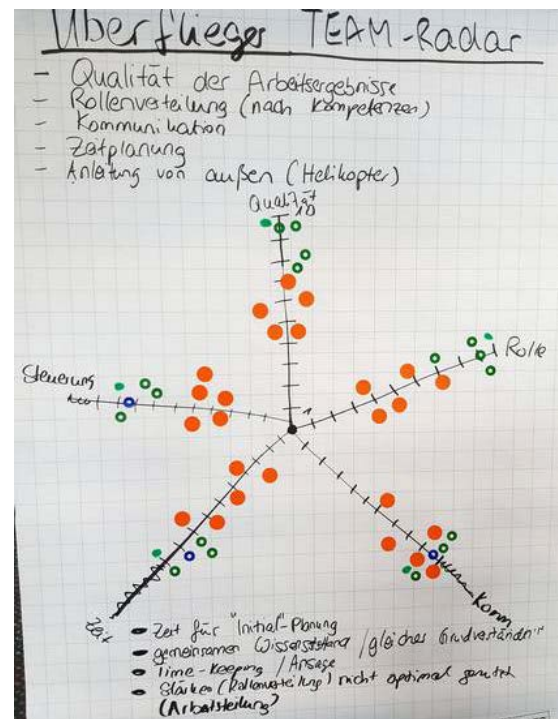 Überflieger TEAM-Radar
- Qualität der Arbeitsergebnisse
- Rollenverteilung (nach Kompetenzen)
- Kommunikation
- Zeitplanung
- Anleitung von außen (Helikopter)
Qualität
10
Rolle
Steuerung
1
Zeit
Komm
- Zeit für "Initial"-Planung
- gemeinsamen Wissensstand / gleiches Grundverständnis
- Time-Keeping / Ansage
- Stärken (Rollenverteilung) nicht optimal genutzt
(Arbeitsteilung)